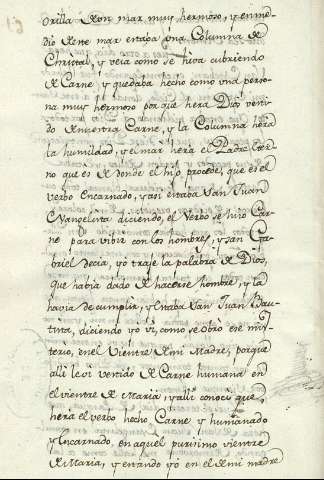 orilla de un mar muy hermoso, y en me
dio de este mar estaba una Columna de
Christal, y veia como se hiva cubriendo
de Carne y quedaba hecho como una perso
na muy hermoso porque hera Dios vesti
do de nuestra Carne, y la Columna hera
la humildad, y el mar hera el Padre Eter
no que es de donde el hijo procede, que es el
verbo Encarnado, y asi estaba San Juan
Evangelista diciendo, el Verbo se hizo Car
ne para vibir con los hombres, y San Ga
briel decia, yo traje la palabra de Dios,
que habia dado de hacerse hombre, y la
havia de cumplir, y Estaba San Juan Bau
tista, diciendo yo vi, como se obró ese mis
terio, en el Vientre de mi Madre, porque
alli le vi vestido de Carne humana en
el vientre de Maria, y alli conoci que
hera el verbo hecho Carne y humanado
y Encarnado, en aquel purisimo vientre
de Maria, y estando yo en el de mi madre